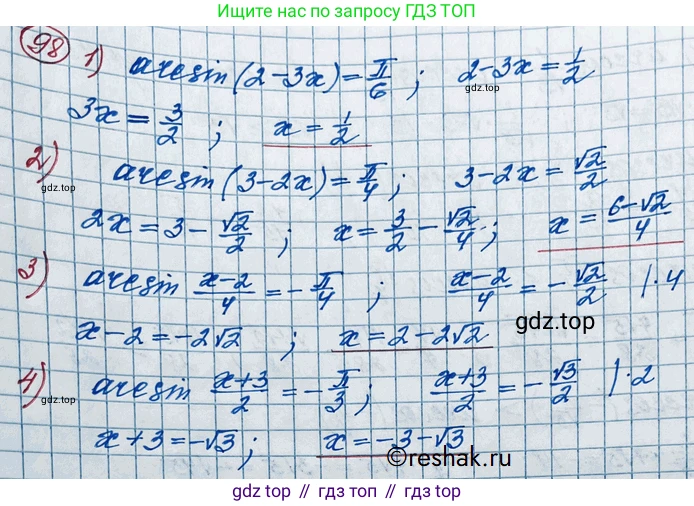 Ищите нас по запросу ГДЗ ТОП
98 1) arcsin(2-3x)=π/6; 2-3x=1/2
3x=3/2; x=1/2
2) arcsin(3-2x)=π/4; 3-2x=√2/2
gdz.top
2x=3-√2/2; x=3/2-√2/4; x=(6-√2)/4
3) arcsin (x-2)/4=-π/4; (x-2)/4=-√2/2 |·4
x-2=-2√2; x=2-2√2
gdz.top
4) arcsin (x+3)/2=-π/3; (x+3)/2=-√3/2 |·2
x+3=-√3; x=-3-√3
©reshak.ru
gdz top гдз топ gdz top гдз топ